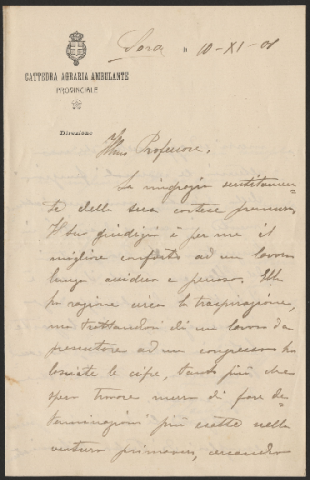 Sora, 10-XI-08
CATTEDRA AGRARIA AMBULANTE
PROVINCIALE
Direzione
Ill.mo Professore,
La ringrazio sentitamen-
te della sua cortese premura.
Il suo giudizio è per me il
migliore conforto ad un lavoro
lungo e penoso. Ella
ha ragione circa la traspirazione,
ma trattandosi di un lavoro da
presentare ad un congresso ho
lasciate le cifre, tanto più che
spero trovare modo di fare de-
terminazioni più esatte nella
ventura primavera, essendo